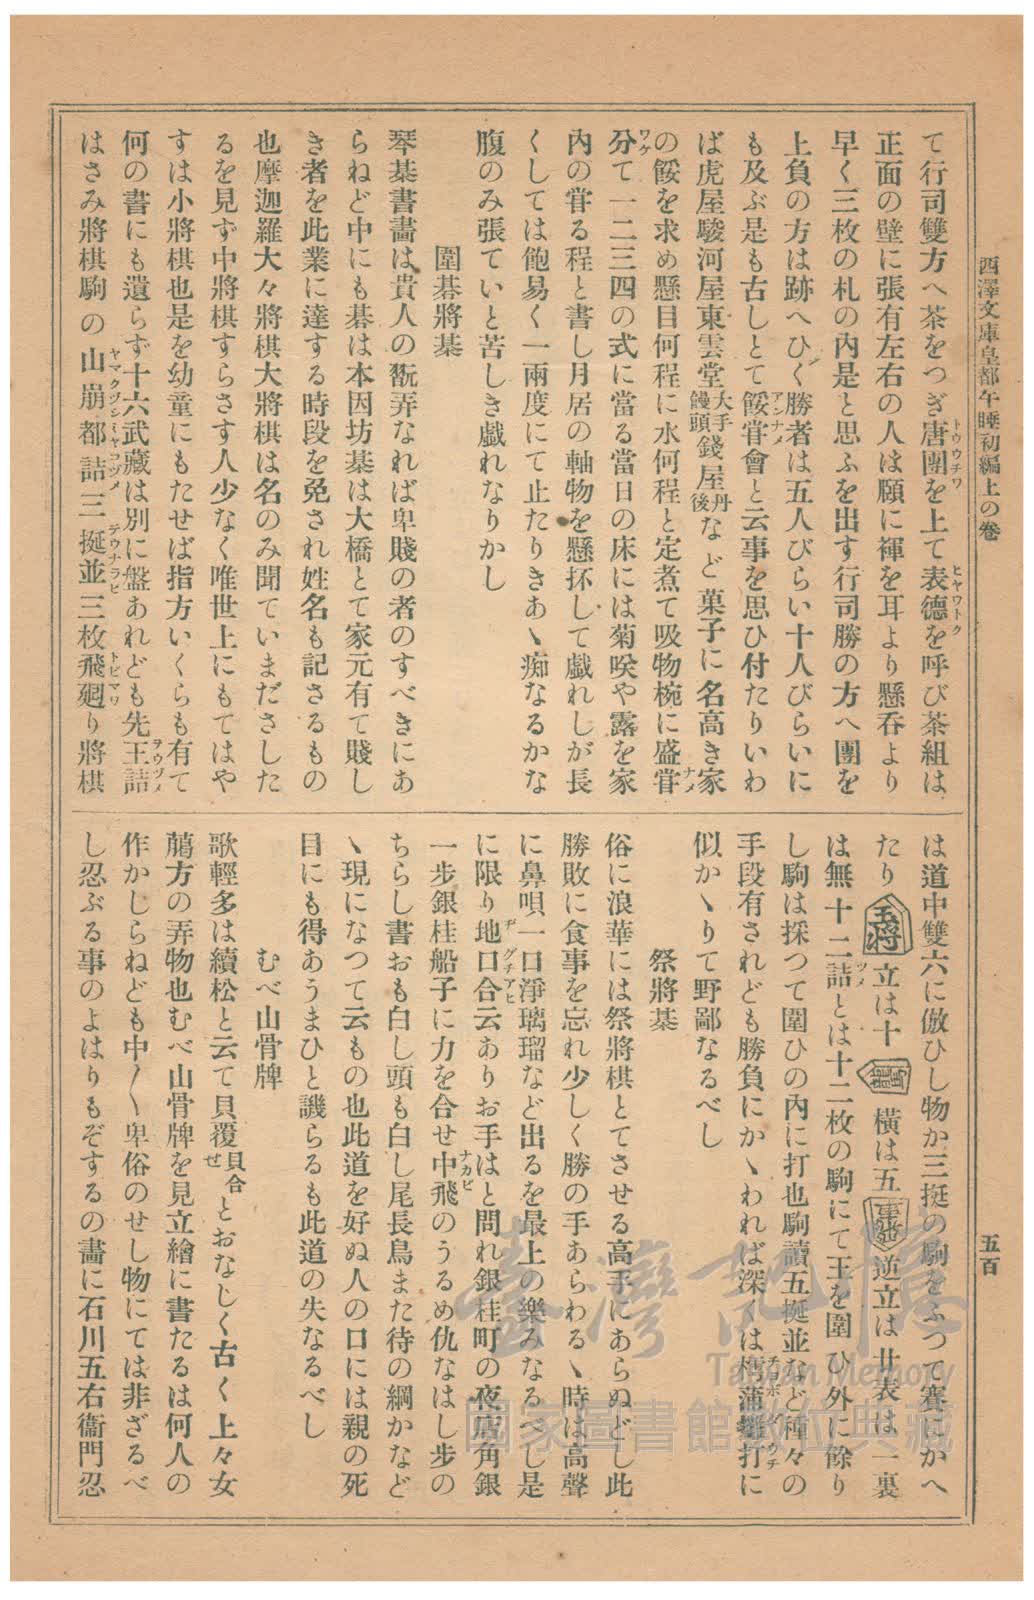 西澤文庫皇都午睡初編上の卷
五百
て行司雙方へ茶をつぎ唐團を上て表德を呼び茶組は
トウウチワ
ヒヤウトク
正面の壁に張有左右の人は願に褌を耳より懸呑より
早く三枚の札の內是と思ふを出す行司勝の方へ團を
上負の方は跡へひく勝者は五人びらい十人びらいに
も及ぶ是も古しとて餒甞會と云事を思ひ付たりいわ
アンナメ
ば虎屋駿河屋東雲堂大手饅頭錢屋丹後など菓子に名高き家
の餒を求め懸目何程に水何程と定煮て吸物椀に盛甞
ナメ
分て一二三四の式に當る當日の床には菊咲や露を家
ワケ
內の甞る程と書し月居の軸物を懸抔して戲れしが長
くしては飽易く一兩度にて止たりきあゝ痴なるかな
腹のみ張ていと苦しき戲れなりかし
圍碁將棊
琴棊書畵は貴人の翫弄なれば卑賤の者のすべきにあ
らねど中にも碁は本因坊棊は大橋とて家元有て賤し
き者を此業に達する時段を免され姓名も記さるもの
也摩迦羅大々將棋大將棋は名のみ聞ていまださした
るを見ず中將棋すらさす人少なく唯世上にもてはや
すは小將棋也是を幼童にもたせば指方いくらも有て
何の書にも遺らず十六武藏は別に盤あれども先王詰
ヲウヅメ
はさみ將棋駒の山崩都詰三挺並三枚飛廻り將棋
ヤマクヅシ
ミヤコヅメ
テウナラビ
トビマワ
は道中雙六に倣ひし物か三挺の駒をふつて賽にかへ
たり玉將立は十橫は五逆立は廿表は一裏
は無十二詰とは十二枚の駒にて王を圍ひ外に餘り
ツメ
し駒は採つて圍ひの內に打也駒讀五挺並など種々の
手段有されども勝負にかゝわれば深くは樗蒲雙打に
チヨボ
ウチ
似かゝりて野鄙なるべし
祭將棊
俗に浪華には祭將棋とてさせる高手にあらぬどし此
勝敗に食事を忘れ少しく勝の手あらわるゝ時は高聲
に鼻唄一口淨璃瑠など出るを最上の樂みなるべし是
に限り地口合云ありお手はと問れ銀桂町の夜店角銀
ヂグチアヒ
一步銀桂船子に力を合せ中飛のうるめ仇なはし步の
ナカビ
ちらし書おも白し頭も白し尾長鳥また待の綱かなど
ゝ現になつて云もの也此道を好ぬ人の口には親の死
目にも得あうまひと譏らるも此道の失なるべし
むべ山骨牌
歌輕多は續松と云て貝覆貝合せとおなじく古く上々女
﨟方の弄物也むべ山骨牌を見立繪に書たるは何人の
作かしらねども中〳〵卑俗のせし物にては非ざるべ
し忍ぶる事のよはりもぞするの畵に石川五右衞門忍
臺灣記憶
Taiwan Memory
國家圖書館數位典藏